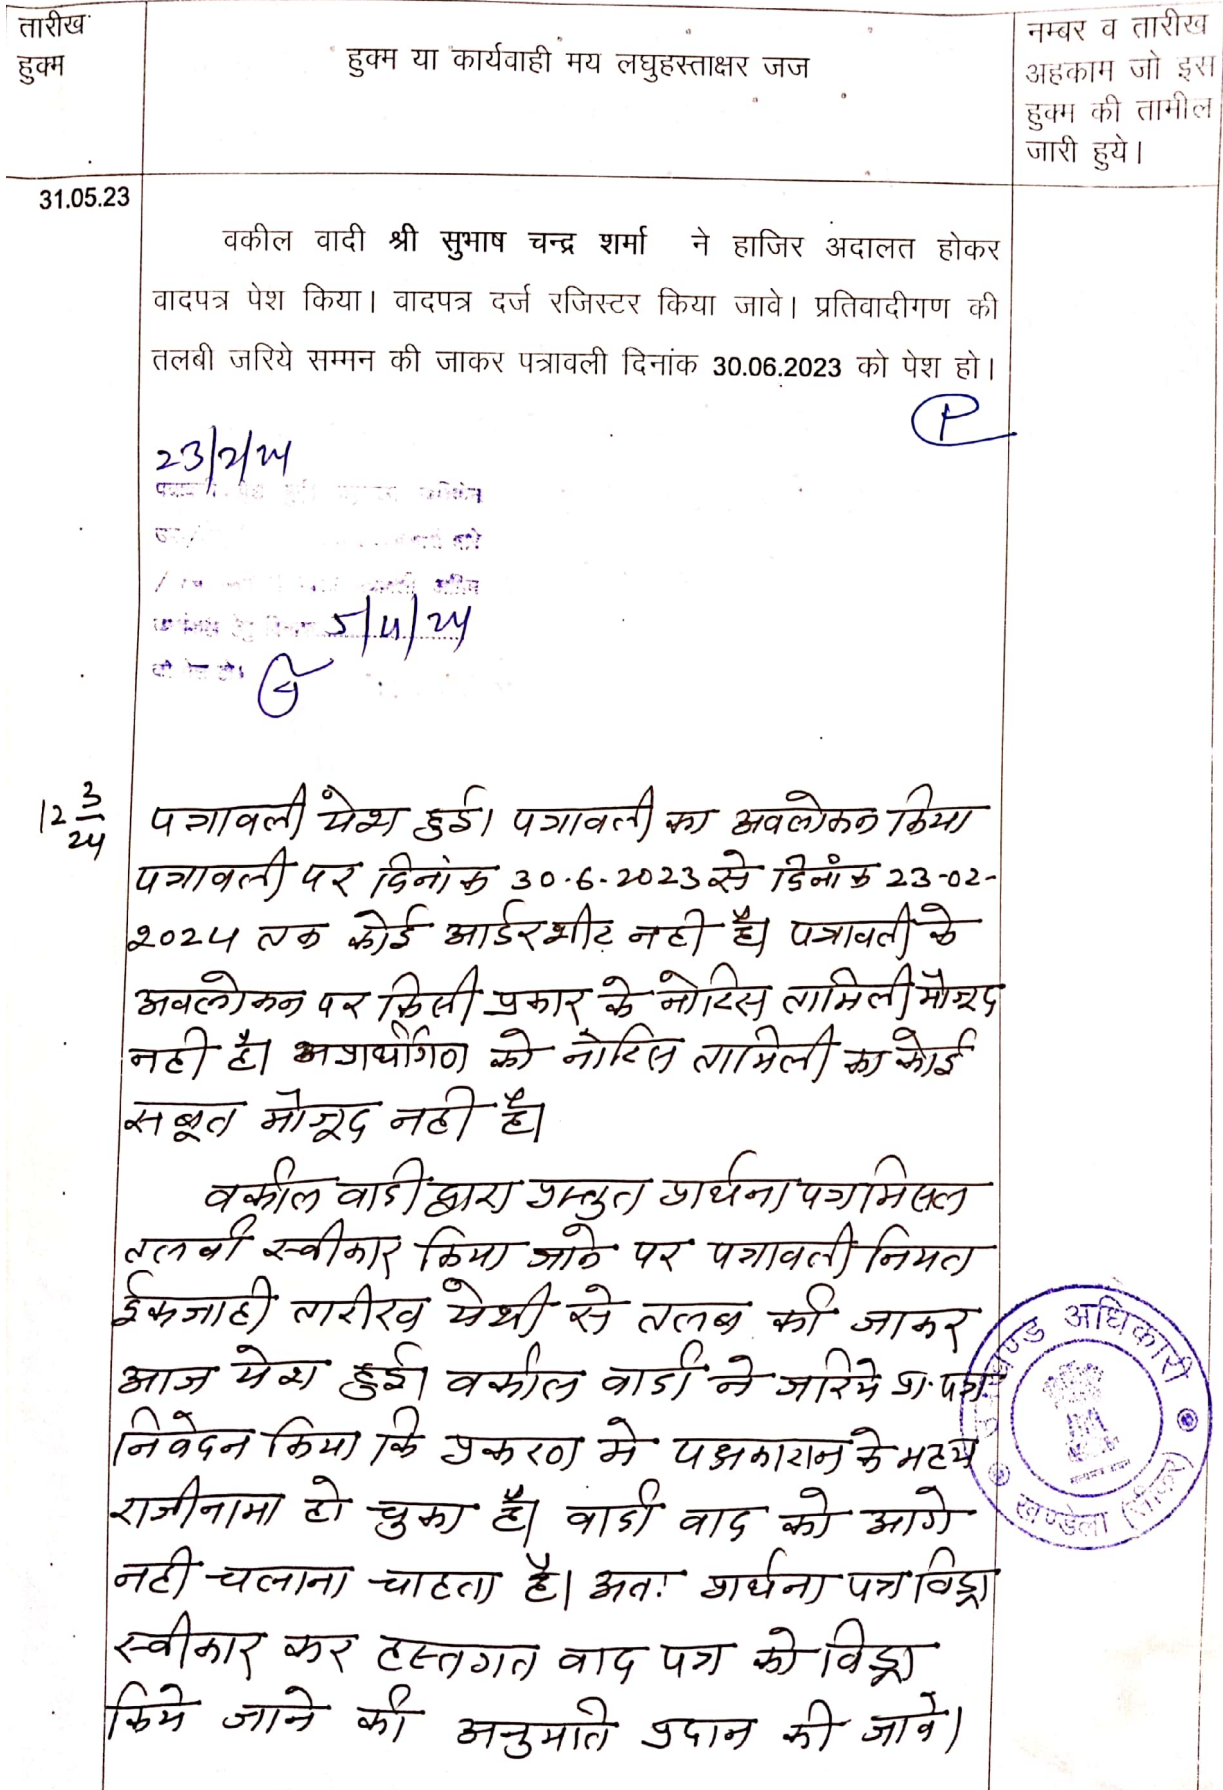 तारीख हुक्म
हुक्म या कार्यवाही मय लघुहस्ताक्षर जज
नम्बर व तारीख
अहकाम जो इस
हुक्म की तामील
जारी हुये।
31.05.23
वकील वादी श्री सुभाष चन्द्र शर्मा ने हाजिर अदालत होकर
वादपत्र पेश किया। वादपत्र दर्ज रजिस्टर किया जावे। प्रतिवादीगण की
तलबी जरिये सम्मन की जाकर पत्रावली दिनांक 30.06.2023 को पेश हो।
23/2/24
5/4/24
12 3/24
पत्रावली पेश हुई। पत्रावली का अवलोकन किया
पत्रावली पर दिनांक 30.6.2023 से दिनांक 23-02-
2024 तक कोई आर्डरशीट नही है। पत्रावली के
अवलोकन पर किसी प्रकार के नोटिस तामिली मौजूद
नही है। अप्रार्थीगण को नोटिस तामिली का कोई
सबूत मौजूद नही है।
वकील वादी द्वारा प्रस्तुत प्रार्थना पत्र मिसल
तलबी स्वीकार किया जाने पर पत्रावली नियत
ईकजाही तारीख पेशी से तलब की जाकर
आज पेश हुई। वकील वादी ने जरिये प्रा. पत्र
निवेदन किया कि प्रकरण मे पक्षकारान के मध्य
राजीनामा हो चुका है। वादी वाद को आगे
नही चलाना चाहता है। अतः प्रार्थना पत्र विड्रा
स्वीकार कर हस्तगत वाद पत्र को विड्रा
किये जाने की अनुमति प्रदान की जावे।
उपखण्ड अधिकारी
खण्डेला (सीकर)